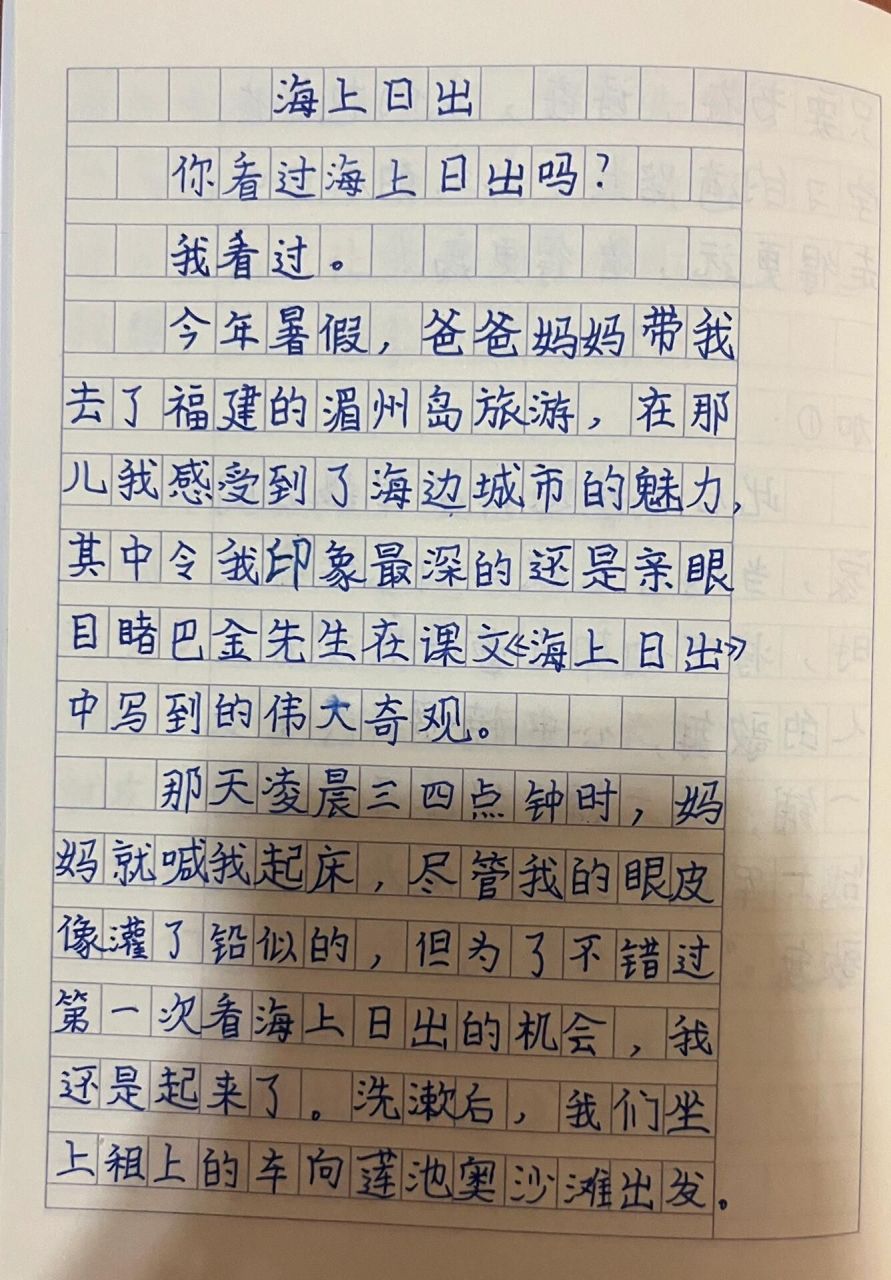 海上日出
你看过海上日出吗?
我看过。
今年暑假,爸爸妈妈带我
去了福建的湄州岛旅游,在那
儿我感受到了海边城市的魅力,
其中令我印象最深的还是亲眼
目睹巴金先生在课文《海上日出》
中写到的伟大奇观。
那天凌晨三四点钟时,妈
妈就喊我起床,尽管我的眼皮
像灌了铅似的,但为了不错过
第一次看海上日出的机会,我
还是起来了。洗漱后,我们坐
上租上的车向莲池奥沙滩出发。